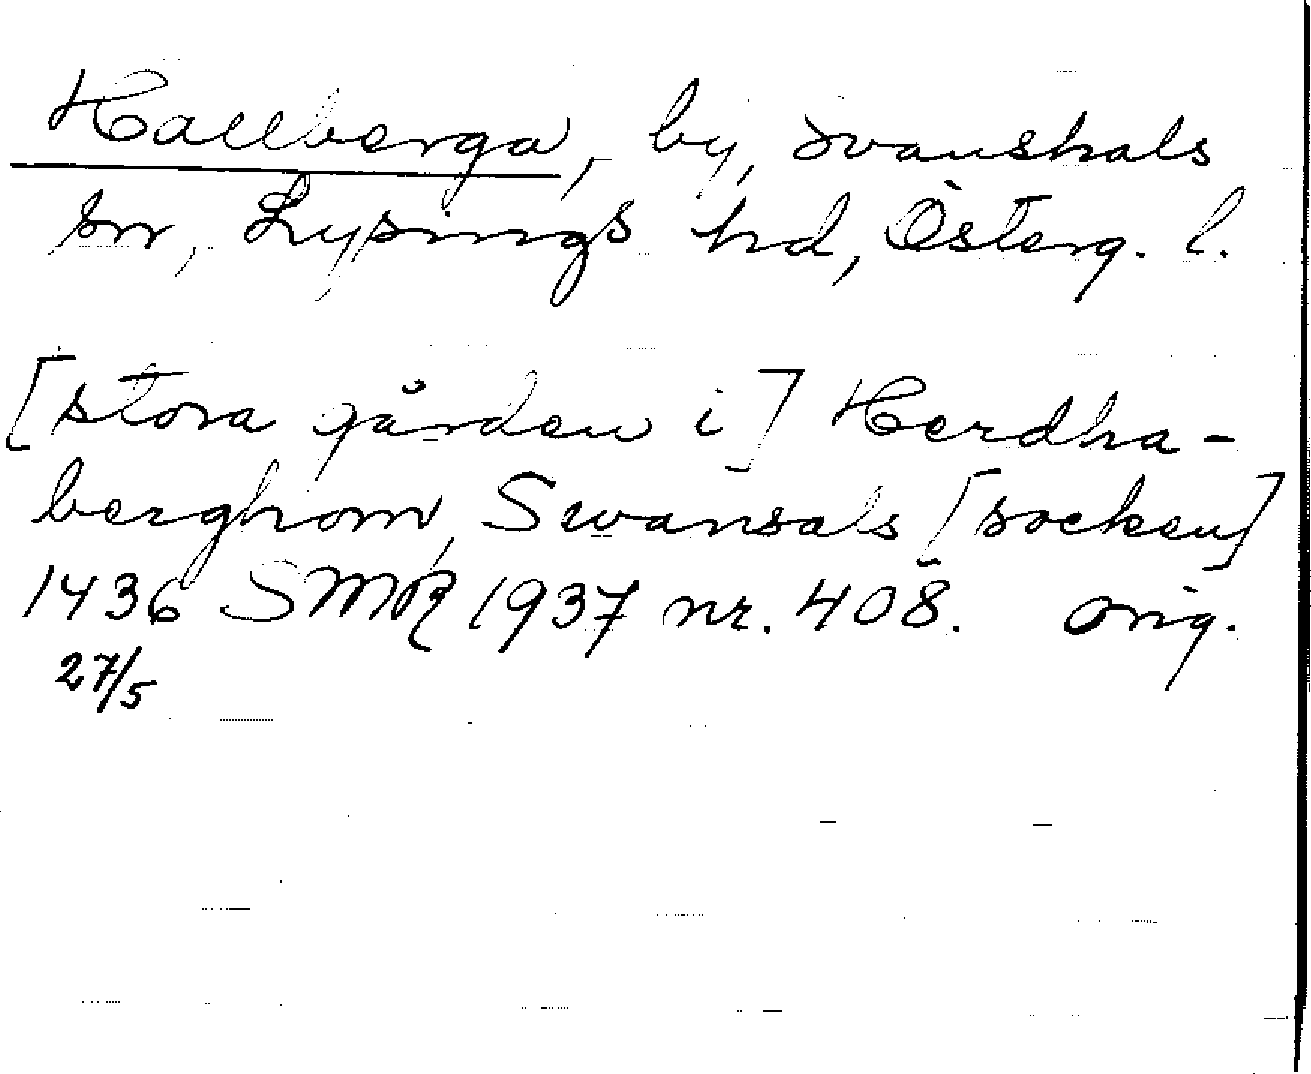 Hallberga, by, Svanshals
sn, Lysings hd, Österg. l.
[stora gården i] Herdha-
berghom, Swansals [socken]
1436 SMR 1937 nr. 408. orig.
27/5